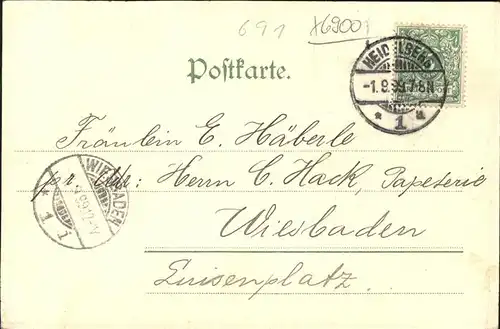 691 X6900
Postkarte.
HEIDELBERG
-1.9.99.7-8N
* 1 *
Fräulein E. Häberle
pr. Adr: Herrn C. Hack, Papeterie
Wiesbaden
Luisenplatz.
WIESBADEN
9.99.12-V
* 1 i